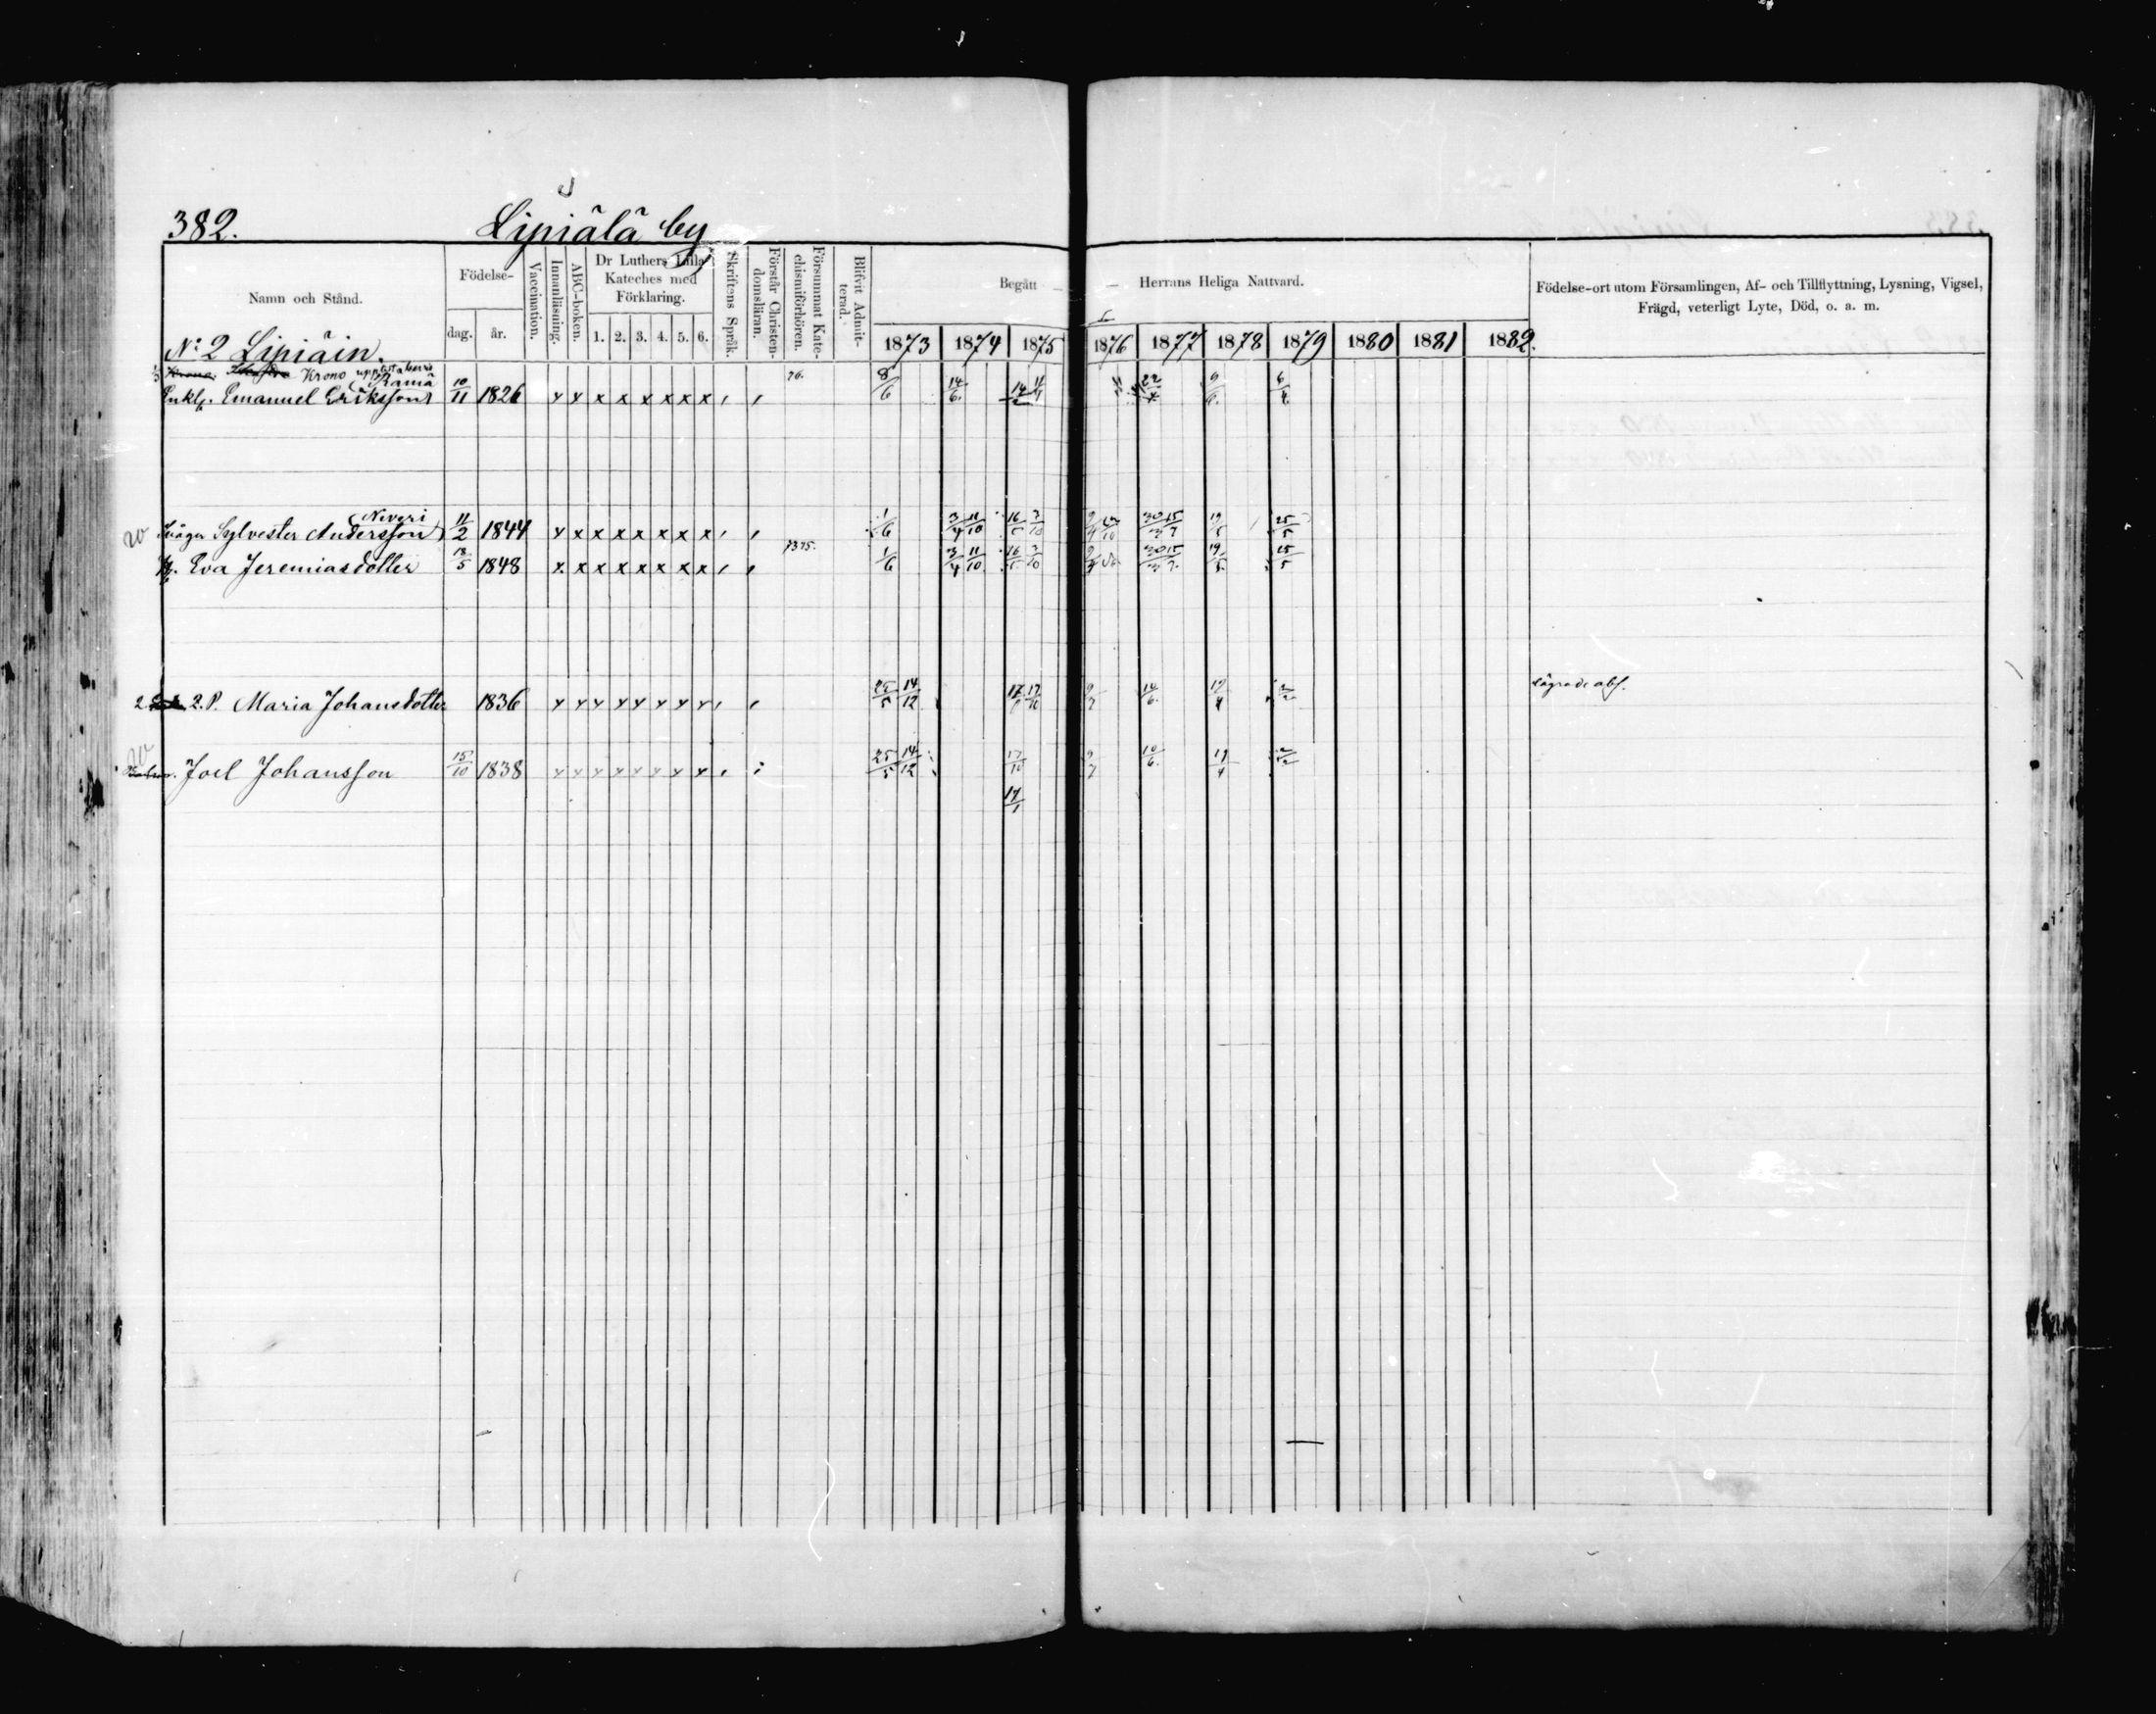 382.
Lipiälä by
Namn och Stånd.
Födelse-
dag.
år.
Vaccination.
Innanläsning.
ABC-boken.
Dr Luthers Lilla
Kateches med
Förklaring.
1. 2. 3. 4. 5. 6.
Skriftens Språk.
Förstår Christen-
domsläran.
Försummat Kate-
chismiförhören.
Blifvit Admit-
terad.
Begått — — Herrans Heliga Nattvard.
1873 1874 1875 1876 1877 1878 1879 1880 1881 1882.
Födelse-ort utom Församlingen, Af- och Tillflyttning, Lysning, Vigsel,
Frägd, veterligt Lyte, Död, o. a. m.
N:o 2 Lipiäin.
Krono
Rämä
Enkl. Emanuel Eriksson 10/11 1826 x x x x x x x x 76. 8/6 14/6
Neveri
Sylvester Andersson 11/2 1844 x x x x x x x x 1/6 3/4 11/10 30 15 19/5 25/5
Eva Jeremiasdotter 13/5 1848 x x x x x x x x 7375. 1/6 3/4 11/10 30 15 19/5 25/5
2.P. Maria Johansdotter 1836 x x x x x x x x 25/5 14/12 17/10 14/6
lägrade abs.
Joel Johansson 15/10 1838 x x x x x x x x 25/5 14/12 17/10 10/6 19/4
17/1